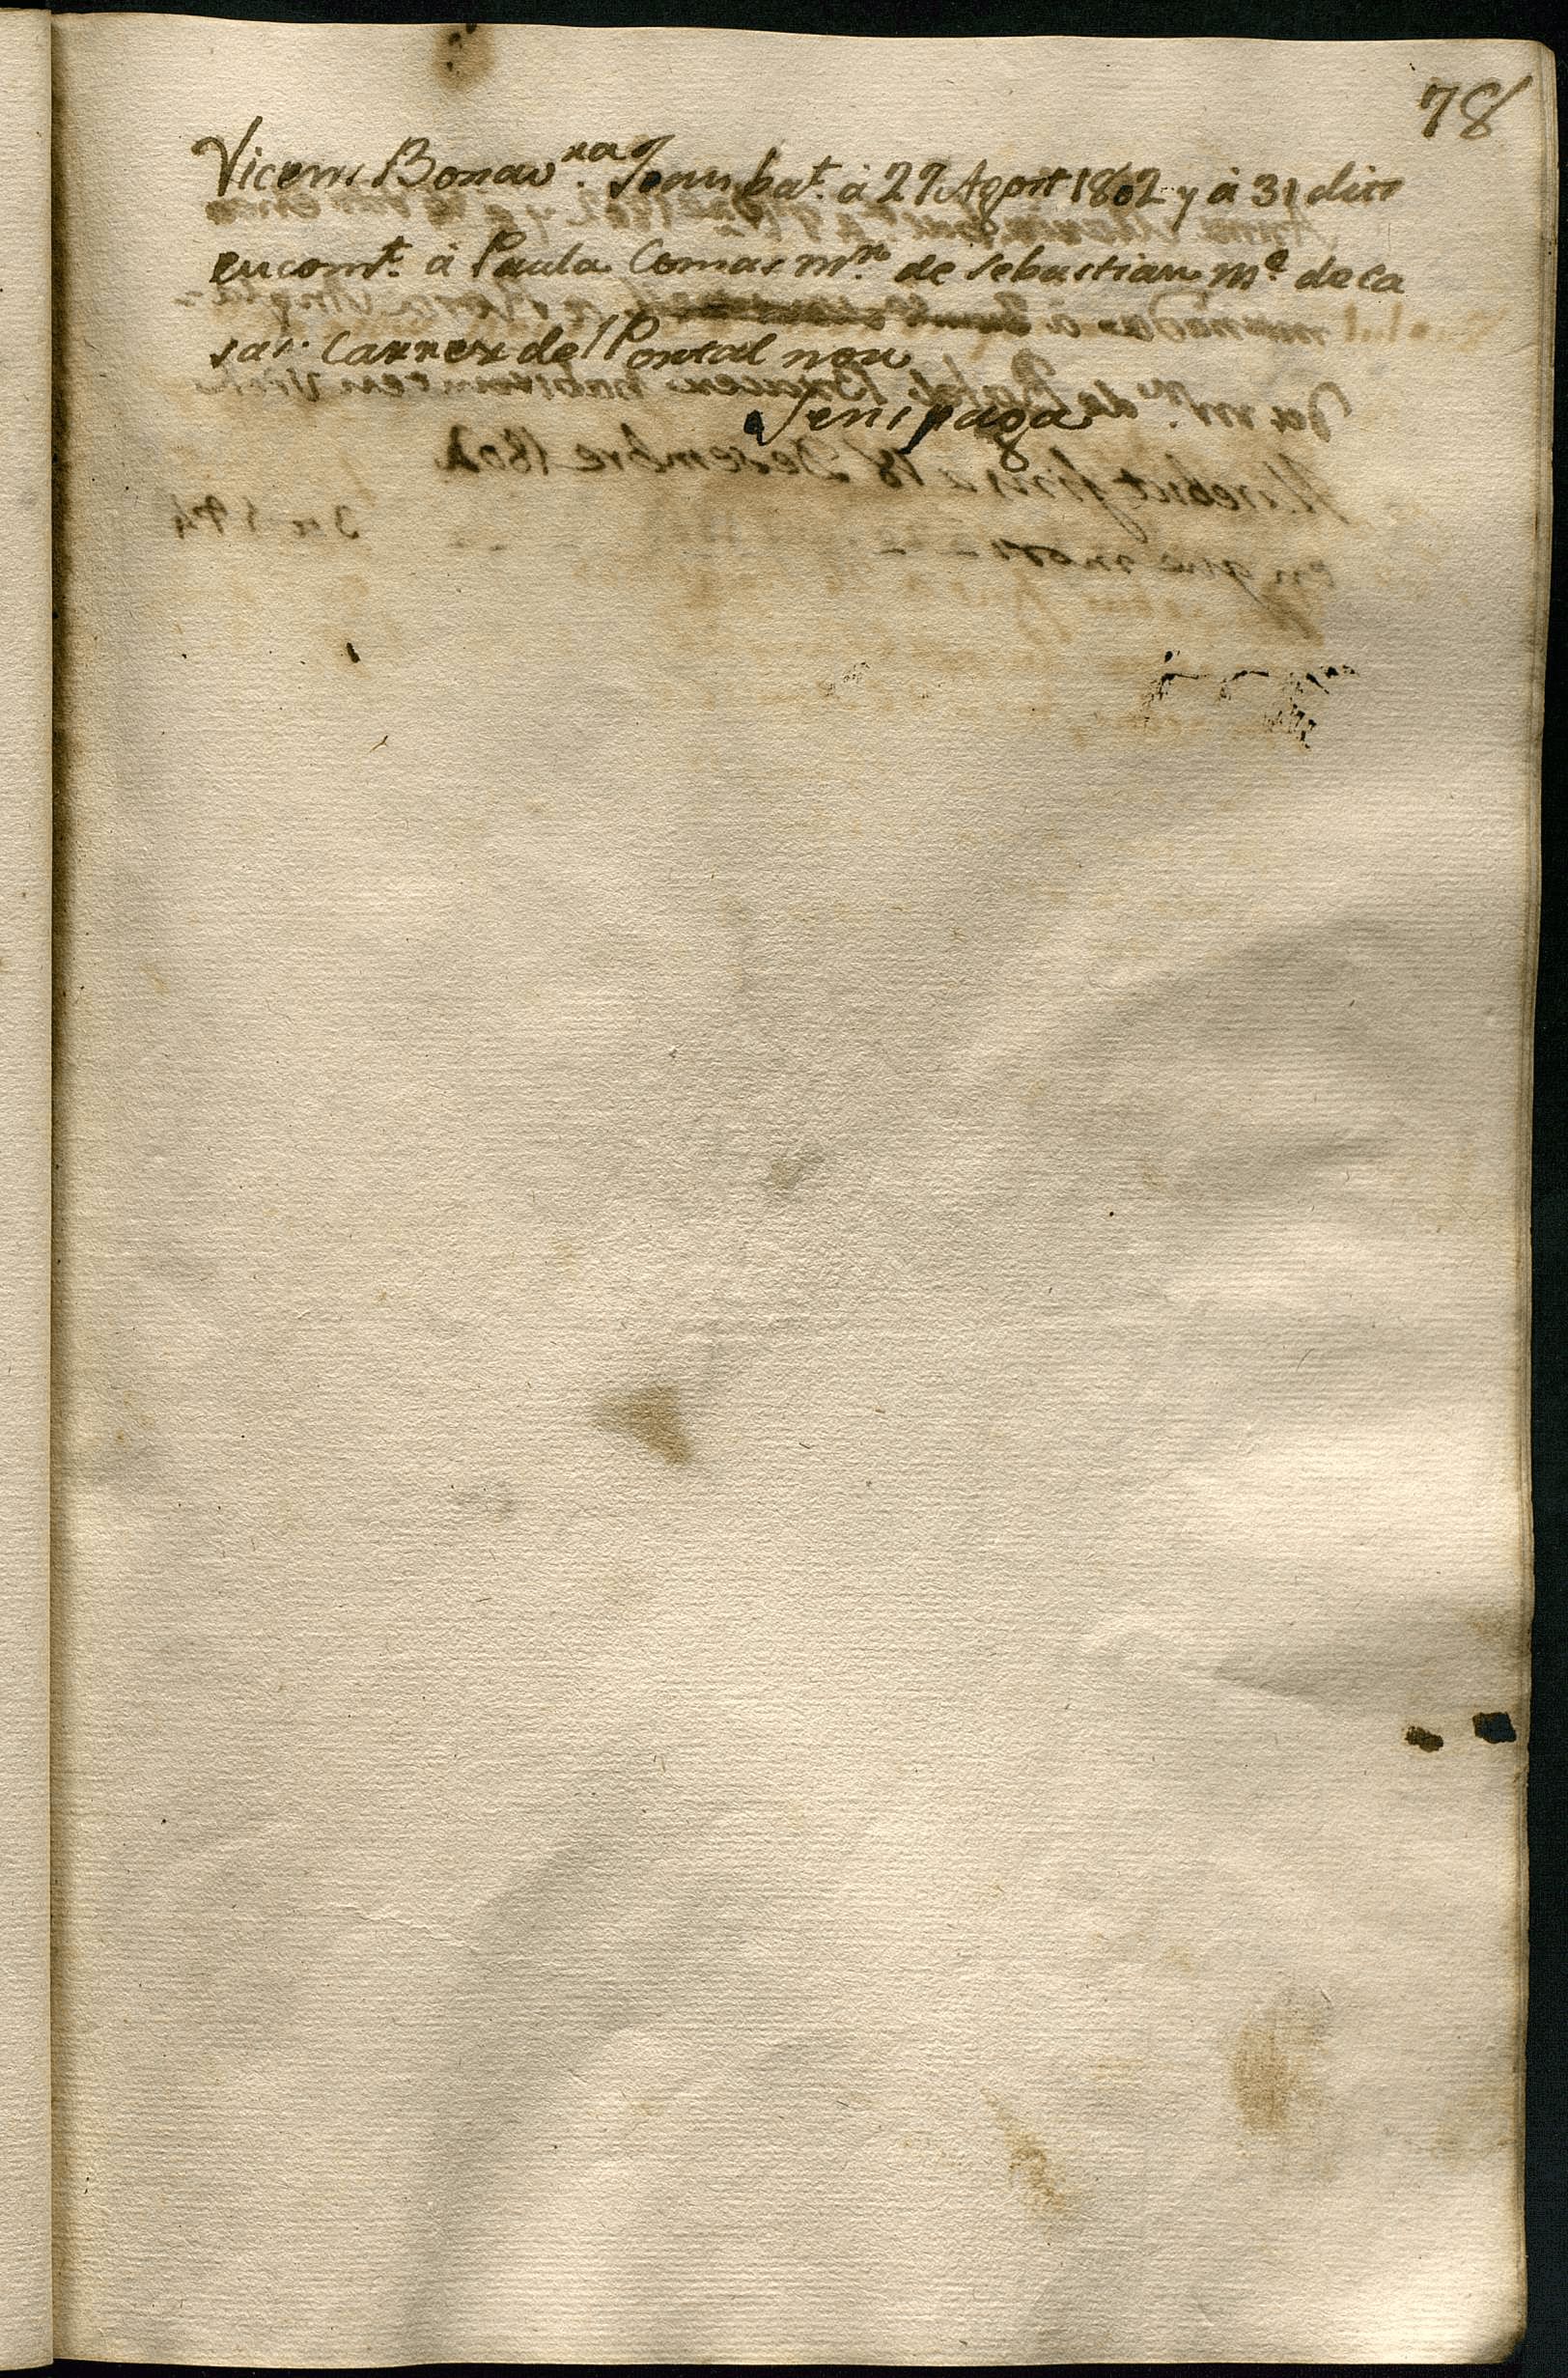 78
Vicens Bonav.ra Joan bat. à 27 Agost 1802 y à 31 dits
encomt. à Paula Comas mr. de Sebastian me. de ca
sas. Carrer del Portal nou
Sens paga